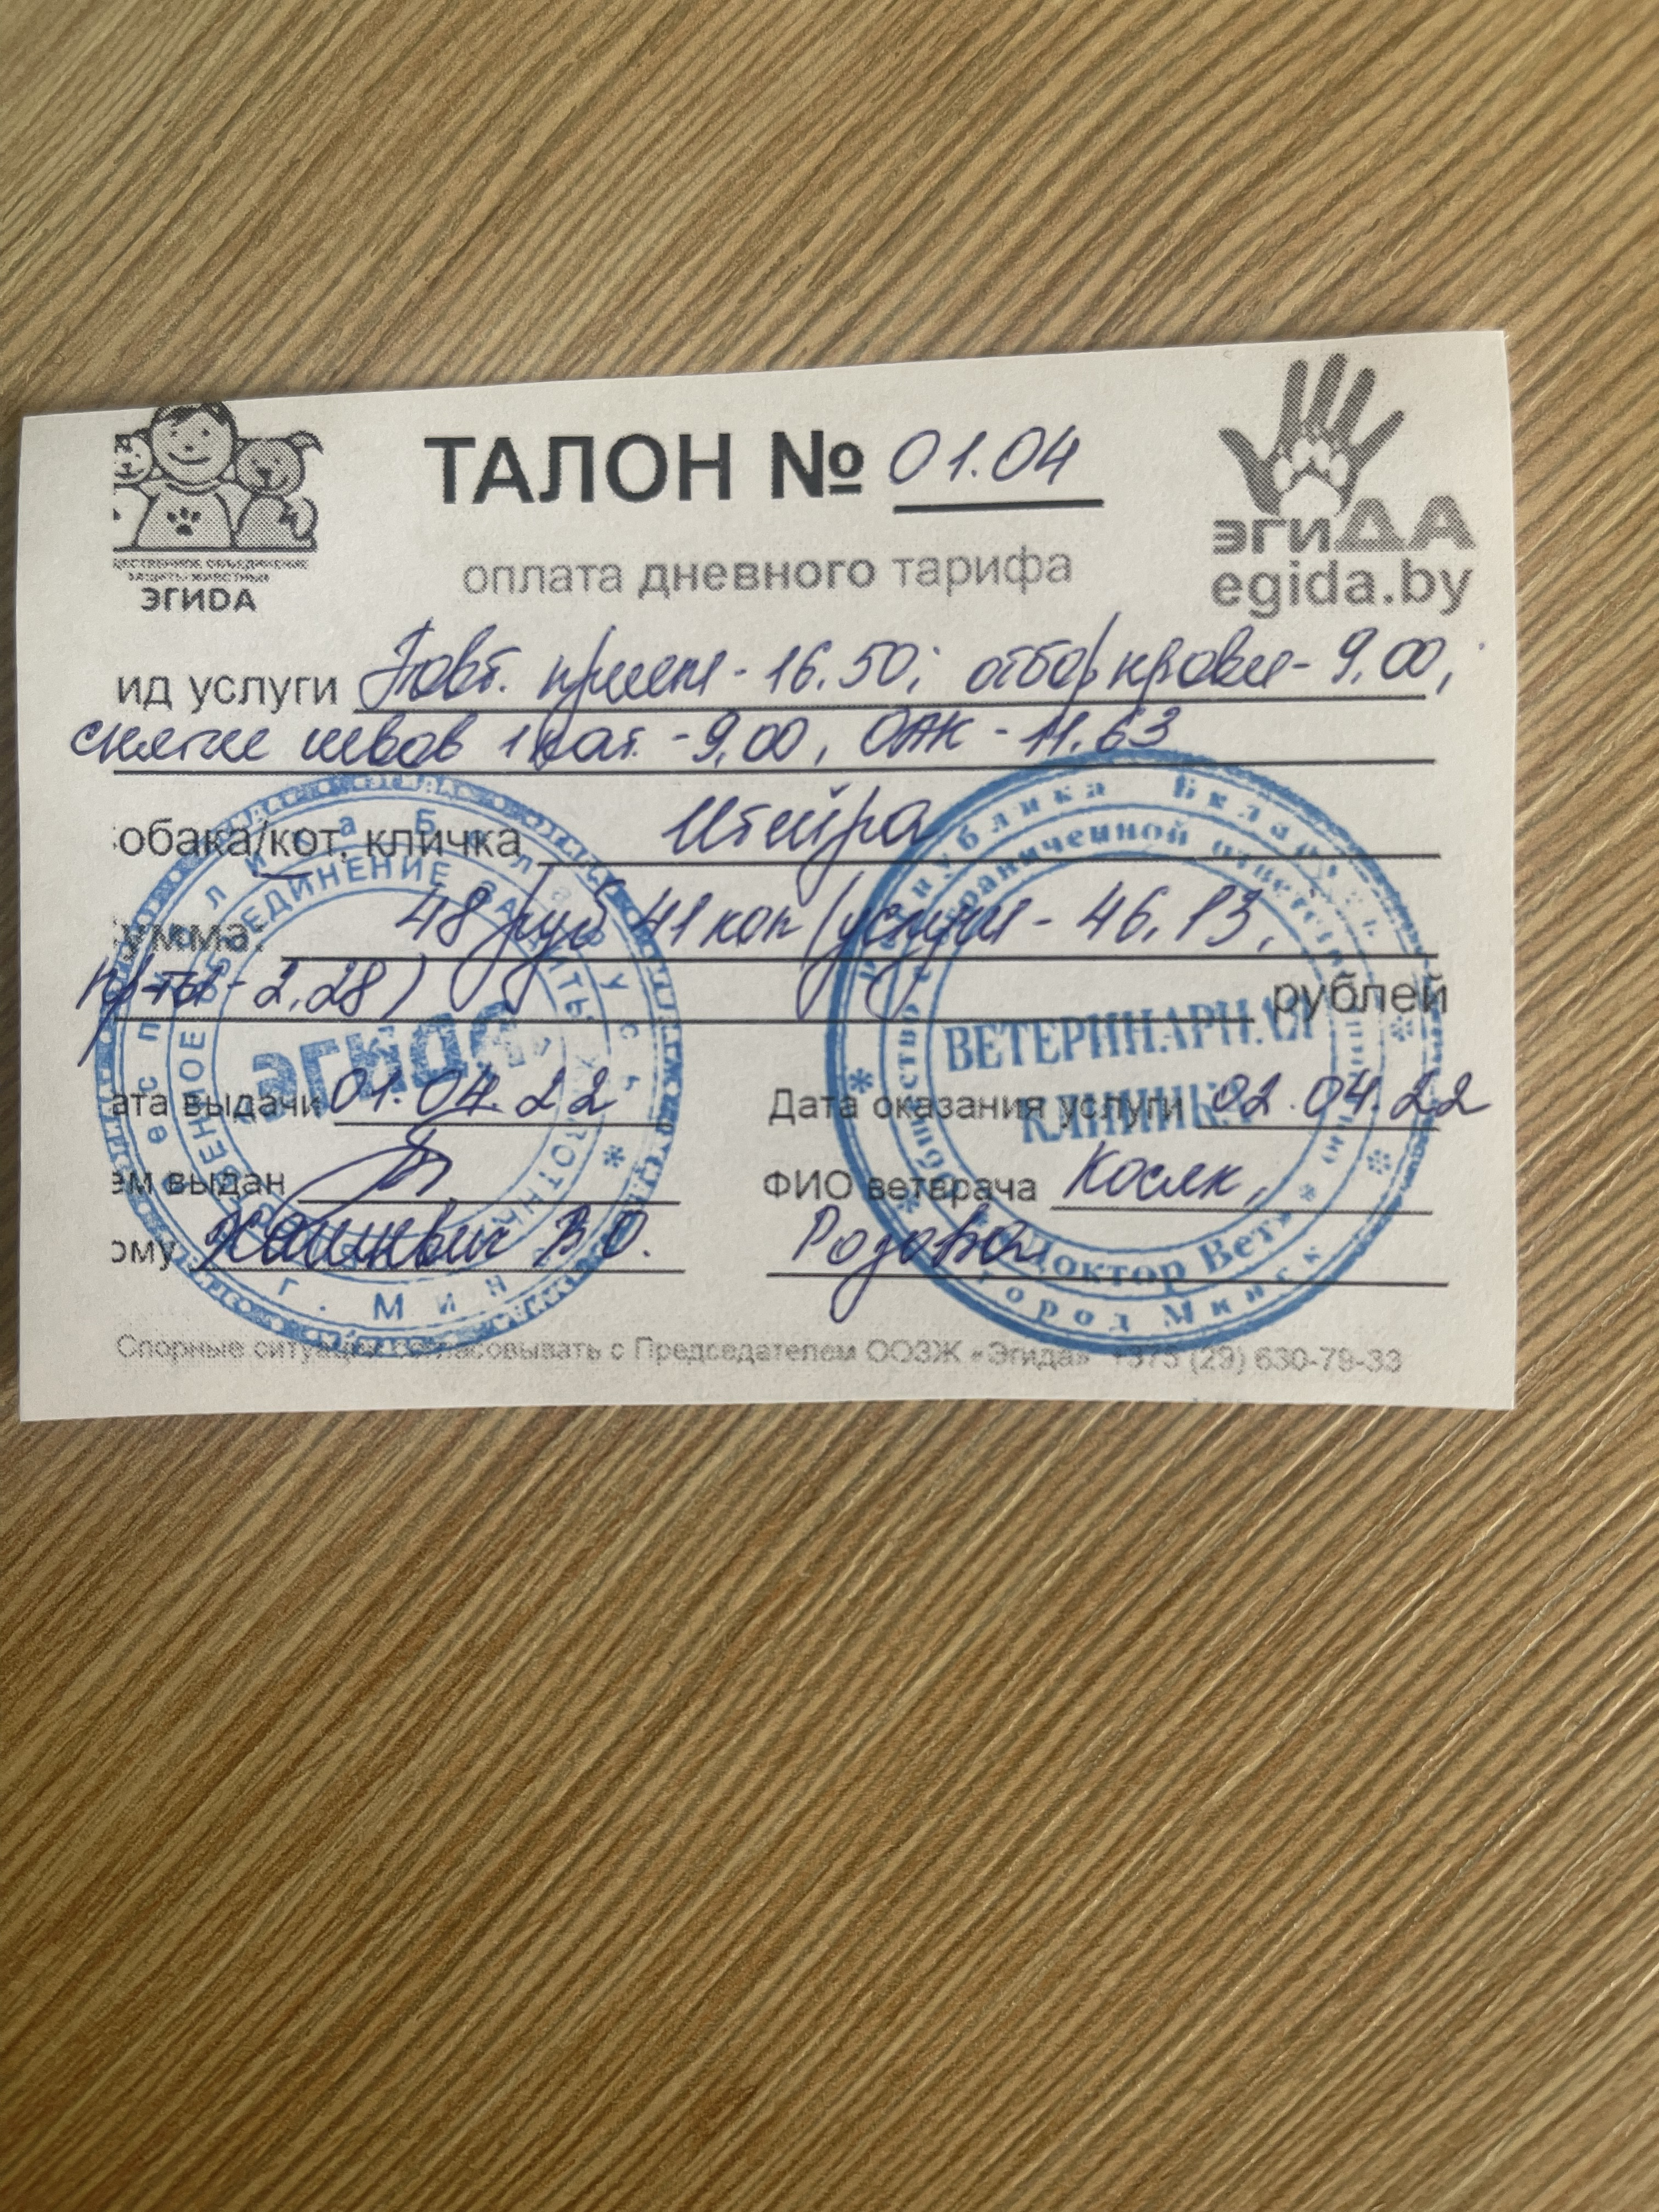 ТАЛОН № 01.04
оплата дневного тарифа
ЩЕСТВЕННОЕ ОБЪЕДИНЕНИЕ
ЗАЩИТЫ ЖИВОТНЫХ
ЭГИДА
эгиДА
egida.by
ид услуги Повт. прием - 16.50; отбор крови - 9.00,
снятие швов 1 кат. - 9.00, ОАК - 11.63
обака/кот, кличка Штейра
умма: 48 руб 41 коп (услуги - 46.13,
пр-ты - 2,28) рублей
ата выдачи 01.04.22 Дата оказания услуги 02.04.22
ем выдан ФИО ветврача Косяк,
ому В О. Родова
Спорные ситуации согласовывать с Председателем ООЗЖ «Эгида» +375 (29) 630-79-33
ОБЪЕДИНЕНИЕ ЗАЩИТЫ ЖИВОТНЫХ
ЭГИДА
г. Минск
Республика Беларусь
ограниченной ответственностью
ВЕТЕРИНАРНАЯ
КЛИНИКА
Доктор Вет»
город Минск